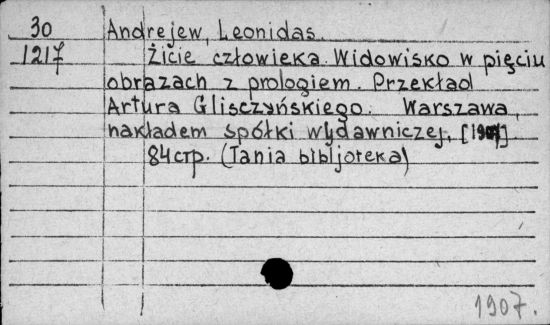 30 Andrejew, Leonidas.
1217 Życie człowieka. Widowisko w pięciu
obrazach z prologiem. Przekład
Artura Glisczyńskiego. Warszawa,
nakładem spółki wydawniczej, [1907]
84 стр. (Tania bibljoteka)
1907.